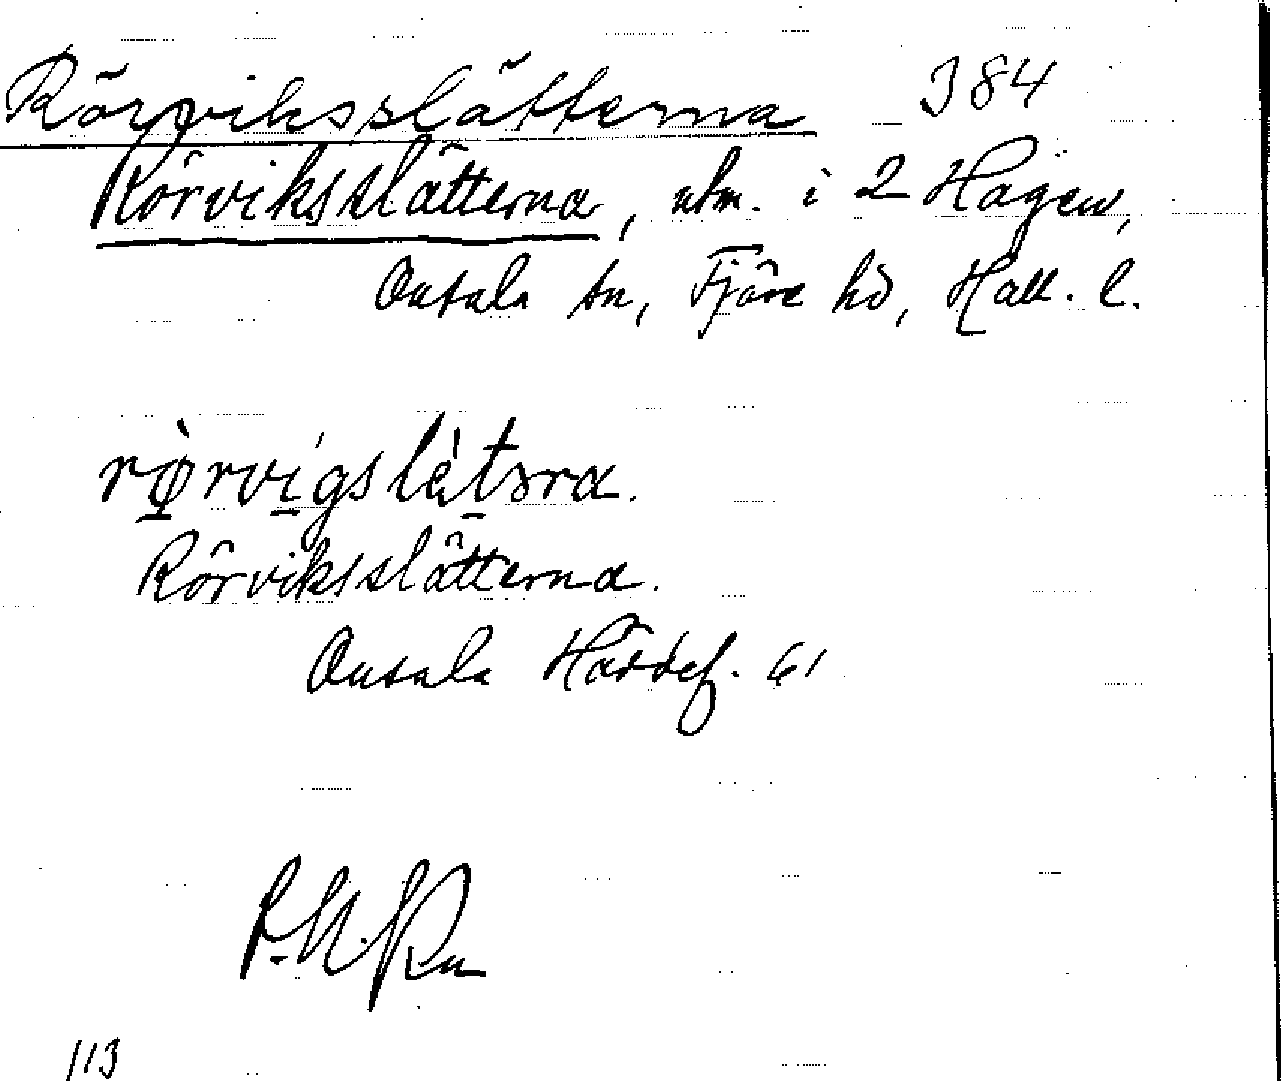 Rörviksslätterna 384
Rörviksslätterna, utm. i 2 Hagen,
Onsala sn, Fjäre hd, Hall. l.
rǿrvigslètərα.
Rörviksslätterna.
Onsala Häddef. 61
113